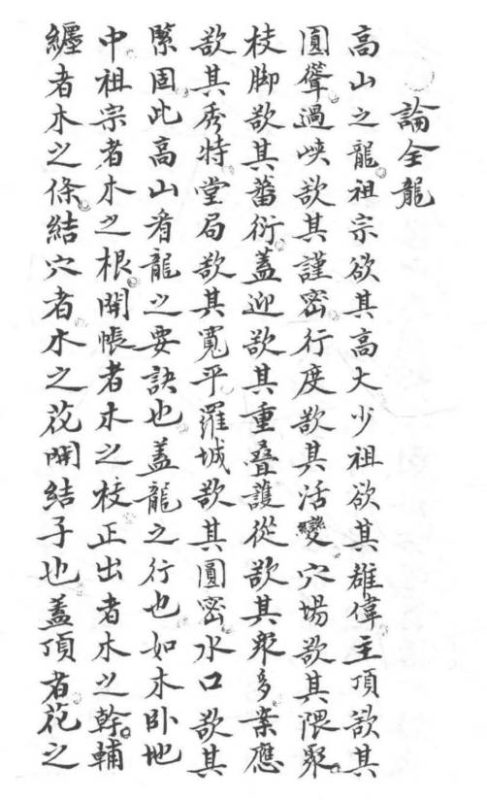 論全龍
高山之龍祖宗欲其高大少祖欲其雄偉主頂欲其
圓聳過峽欲其謹密行度欲其活變穴場欲其隈聚
枝脚欲其蕃衍盖迎欲其重叠護從欲其眾多案應
欲其秀特堂局欲其寬平羅城欲其圓密水口欲其
緊固此高山看龍之要訣也盖龍之行也如木卧地
中祖宗者木之根開帳者木之枝正出者木之幹輔
纏者木之條結穴者木之花開結子也盖頂者花之